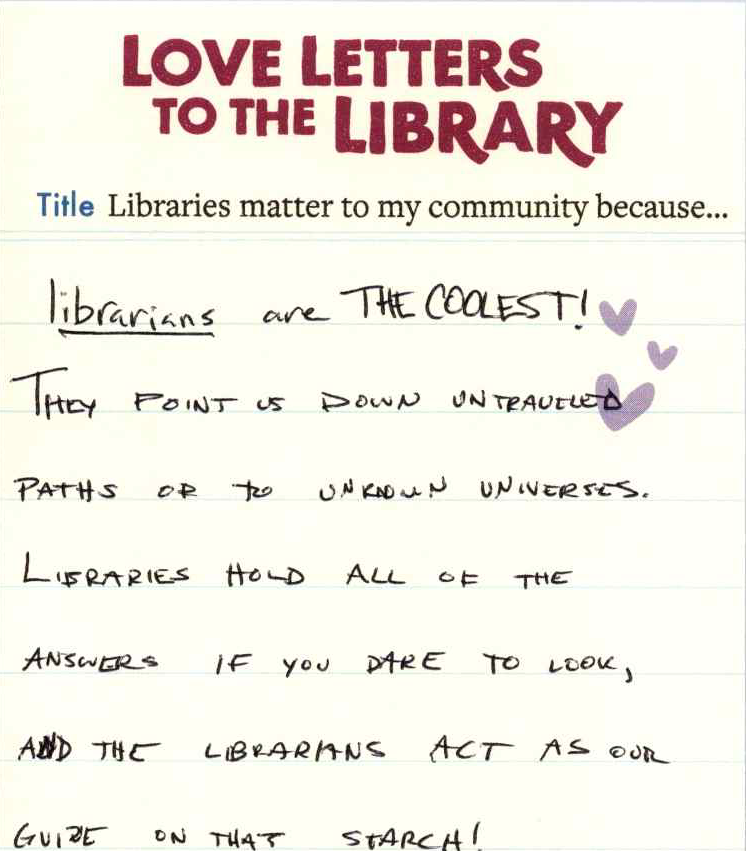 LOVE LETTERS
TO THE LIBRARY
Title Libraries matter to my community because...
librarians are THE COOLEST!
THEY POINT US DOWN UNTRAVELED
PATHS OR TO UNKNOWN UNIVERSES.
LIBRARIES HOLD ALL OF THE
ANSWERS IF YOU DARE TO LOOK,
AND THE LIBRARIANS ACT AS OUR
GUIDE ON THAT SEARCH!